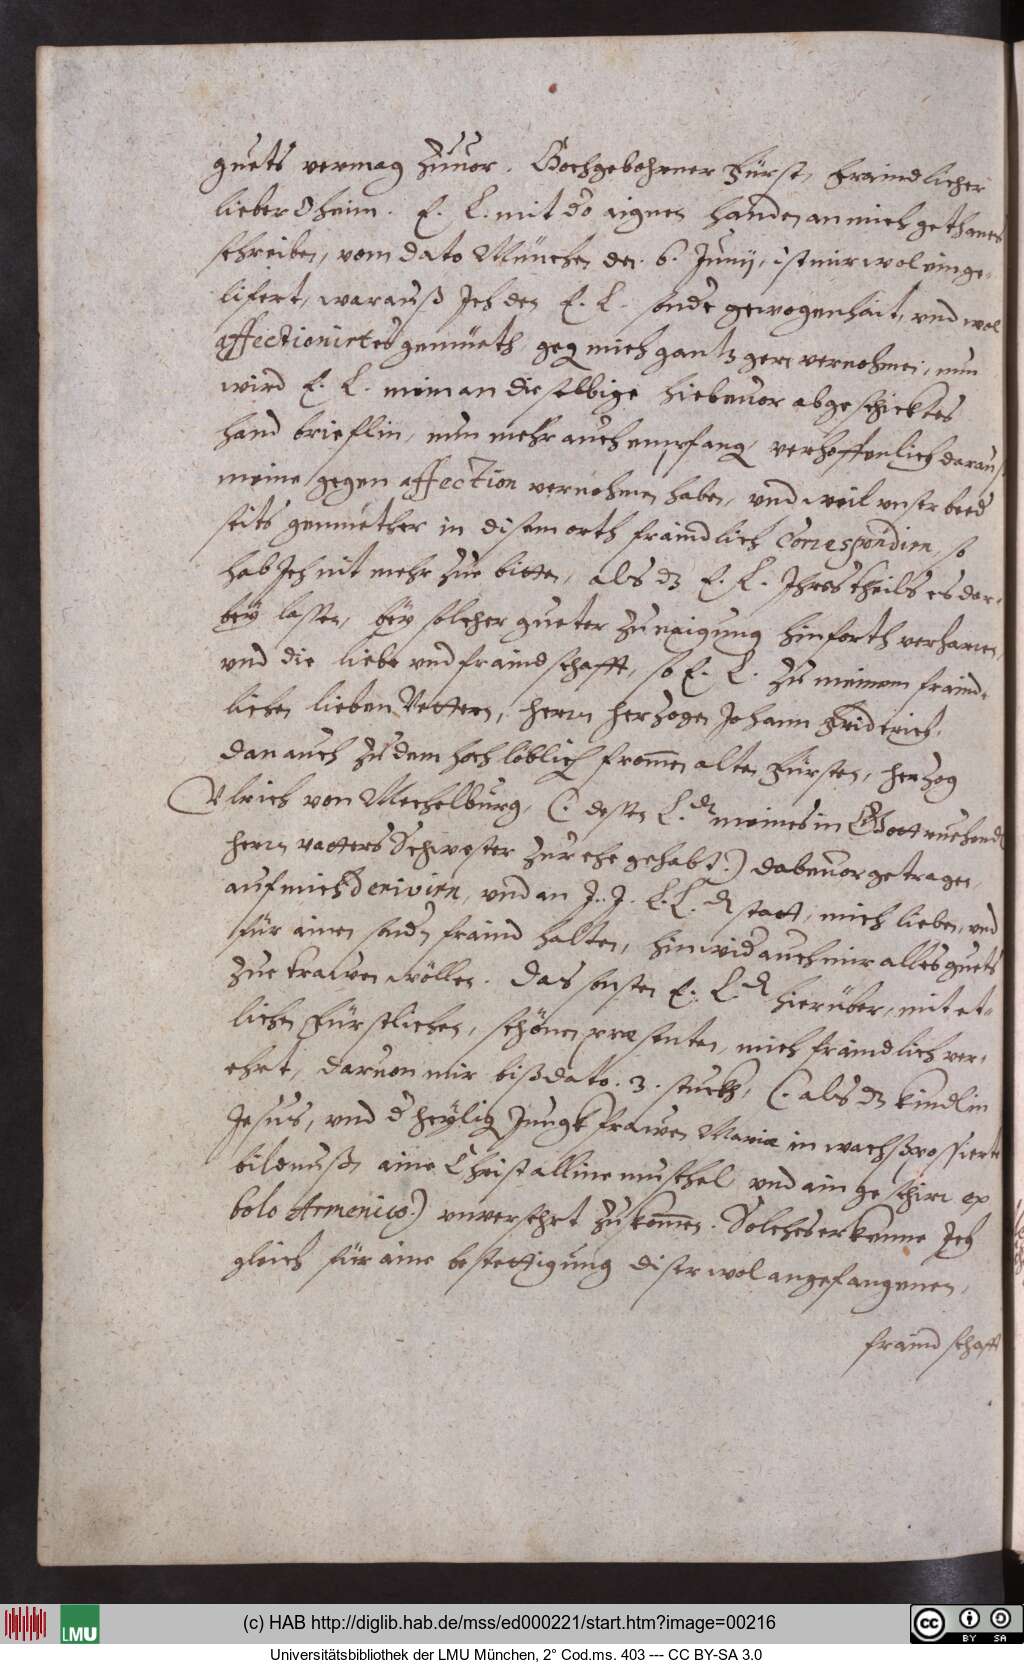 guets vermag zuuor. Hochgebohrner Fürst, fraindlicher
lieber Oheim. E. L. mit do aignen handen an mich gethanes
schreiben, vom dato München den. 6. Junij, ist mir wol einge-
lifert, warauß Jch den E. L. sonde gewogenhait, vnd wol
affectionirtes gemüeth geg mich gantz gern vernohmen, nun
wird E. L. mein an dieselbige hiebeuor abgeschicktes
hand brieflin, nun mehr auch empfang, verhoffenlich daraus
meine gegen affection vernohmen haben, vnd weil vnser beed
seits gemüether in disem orth fraindlich Correspondirn, so
hab Jch nit mehr zue bitten, als dz E. L. Jhres theils es dar-
bey lassen, bey solcher gueter zunaigung hinforth verharren,
vnd die liebe vnd fraindschafft, so E. L. zu meinem fraind-
lichen lieben Vettern, herrn herzogen Johann Friderich.
dan auch zu dem hochloblich frommen alten Fürsten, herzog
Vlrich von Mechelburg, (. dessen L.dn meines in Gott ruehend
herrn vatters Schwester zur ehe gehabt.) dabeuor getragen,
auf mich derivirn, vnd an J. J. L. L.dn statt, mich lieben, vnd
für ainen sondn fraind halten, hinwid auch mir alles guets
zue trawen wöllen. Das sonsten E. L.d hierüber, mit et-
lichen Fürstlichen, schönen præsenten, mich fraindlich ver-
ehrt, daruon mir biß dato. 3. stuckh, (. als dz kindlin
Jesus, vnd d heylig Jungkfrawen Mariæ in wachß possierte
bildnußn aine Christalline muschel vnd ain geschirr ex
bolo Armenico.) vnversehrt zukommen. Solches erkenne Jch
gleich für aine bestettigung diser wol angefangenen,
fraindschafft
(c) HAB http://diglib.hab.de/mss/ed000221/start.htm?image=00216
LMU
BY SA
Universitätsbibliothek der LMU München, 2° Cod.ms. 403 --- CC BY-SA 3.0